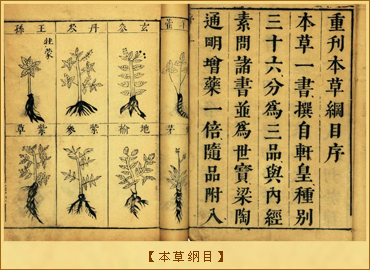 重刊本草綱目序
本草一書撰自軒皇種別
三十六分為三品與內經
素問諸書並為世寶梁陶
通明增藥一倍隨品附入
玄參
丹參
王孫
牡蒙
地榆
紫參
紫草
【本草綱目】